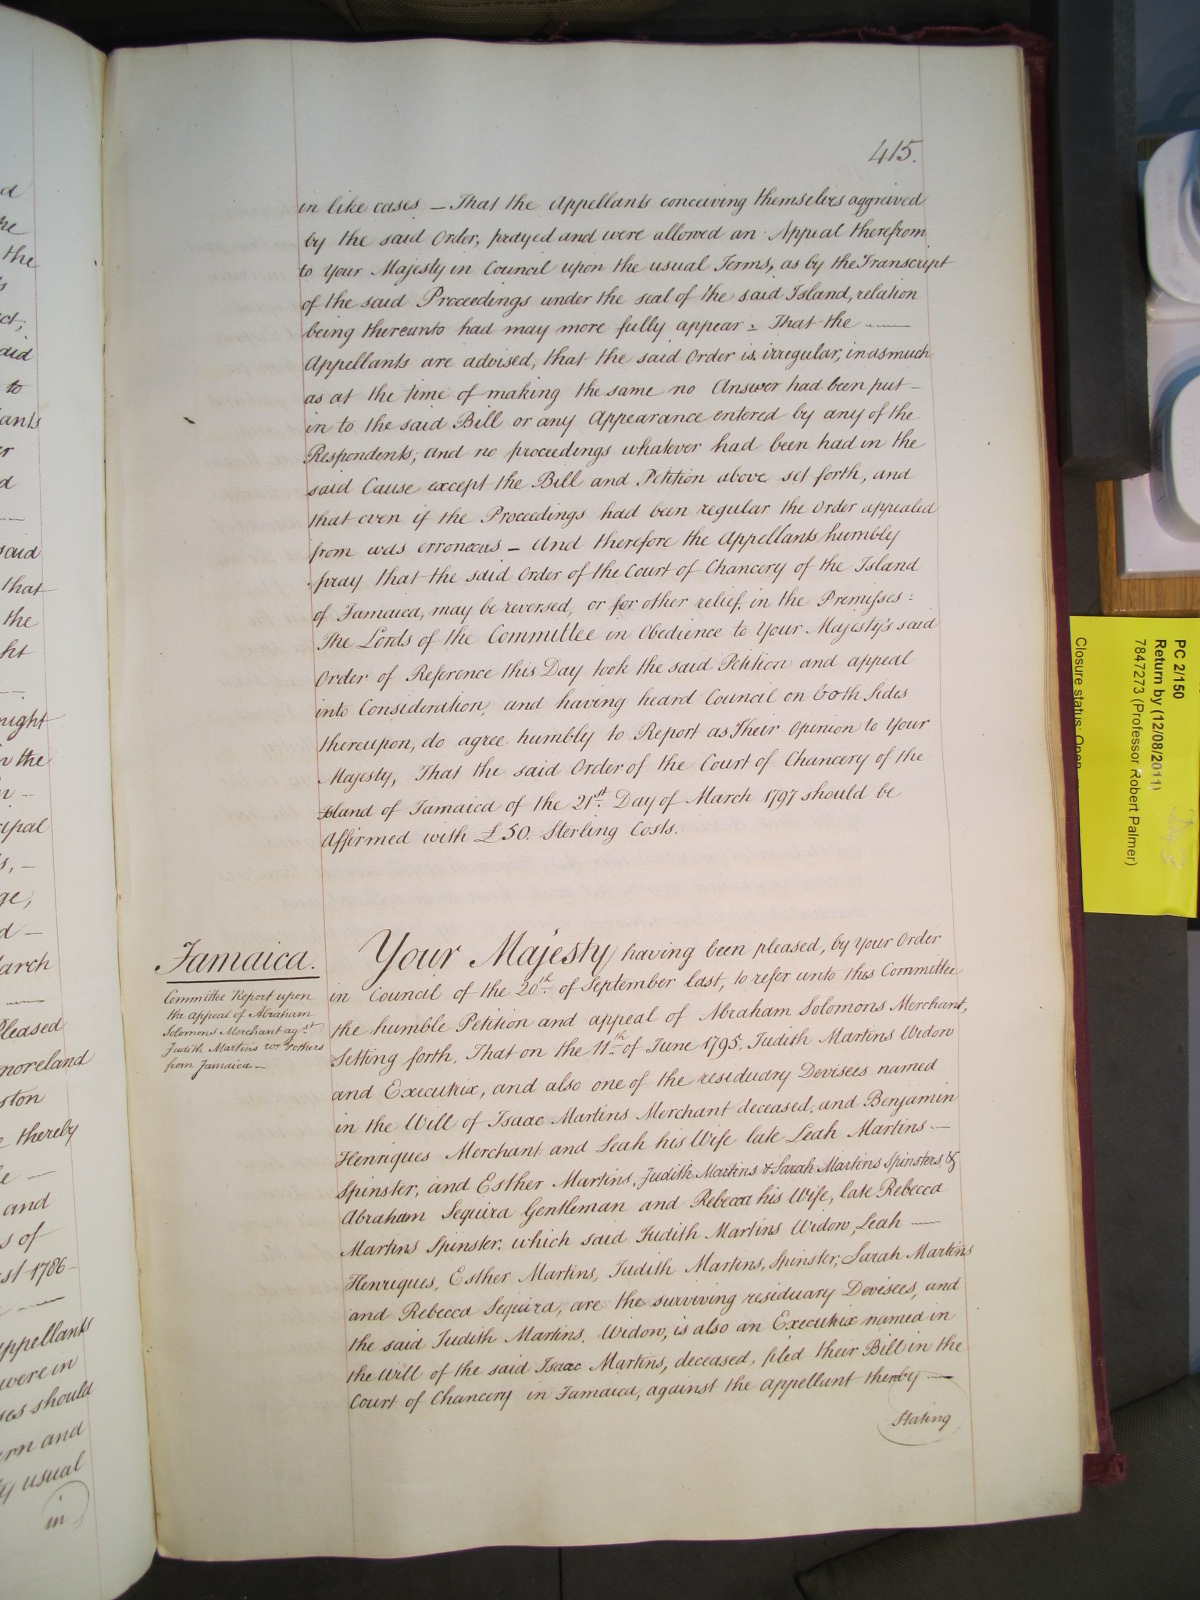 415.
in like cases — That the Appellants conceiving themselves aggrieved
by the said Order, prayed and were allowed an Appeal therefrom
to Your Majesty in Council upon the usual Terms, as by the Transcript
of the said Proceedings under the seal of the said Island, relation
being thereunto had may more fully appear : That the —
Appellants are advised, that the said Order is irregular, inasmuch
as at the time of making the same no Answer had been put –
in to the said Bill or any Appearance entered by any of the
Respondents; and no proceedings whatever had been had in the
said Cause except the Bill and Petition above set forth, and
that even if the Proceedings had been regular the Order appealed
from was erroneous – And therefore the Appellants humbly
pray that the said Order of the Court of Chancery of the Island
of Jamaica, may be reversed, or for other relief, in the Premisses :
The Lords of the Committee in Obedience to Your Majesty's said
Order of Reference this Day took the said Petition and appeal
into Consideration, and having heard Council on both sides
thereupon, do agree humbly to Report as Their Opinion to Your
Majesty, That the said Order of the Court of Chancery of the
Island of Jamaica of the 21st. Day of March 1797 should be
Affirmed with £50. Sterling Costs.
Jamaica.
Committee Report upon
the appeal of Abraham
Solomons Merchant agst
Judith Martins wo: & others
from Jamaica.—
Your Majesty having been pleased, by Your Order
in Council of the 20th. of September last, to refer unto this Committee
the humble Petition and appeal of Abraham Solomons Merchant,
Setting forth, That on the 11th of June 1795, Judith Martins Widow
and Executrix, and also one of the residuary Devisees named
in the Will of Isaac Martins Merchant deceased, and Benjamin
Henriques Merchant and Leah his Wife late Leah Martins —
Spinster, and Esther Martins, Judith Martins & Sarah Martins Spinsters, &
Abraham Sequira Gentleman and Rebecca his Wife, late Rebecca
Martins Spinster, which said Judith Martins Widow, Leah —
Henriques, Esther Martins, Judith Martins, Spinster, Sarah Martins
and Rebecca Sequira, are the surviving residuary Devisees, and
the said Judith Martins, Widow, is also an Executrix named in
the Will of the said Isaac Martins, deceased, filed their Bill in the
Court of Chancery in Jamaica, against the appellant thereby —
Stating
PC 2/150
Return by (12/08/2011)
7847273 (Professor Robert Palmer)
Closure status: Open